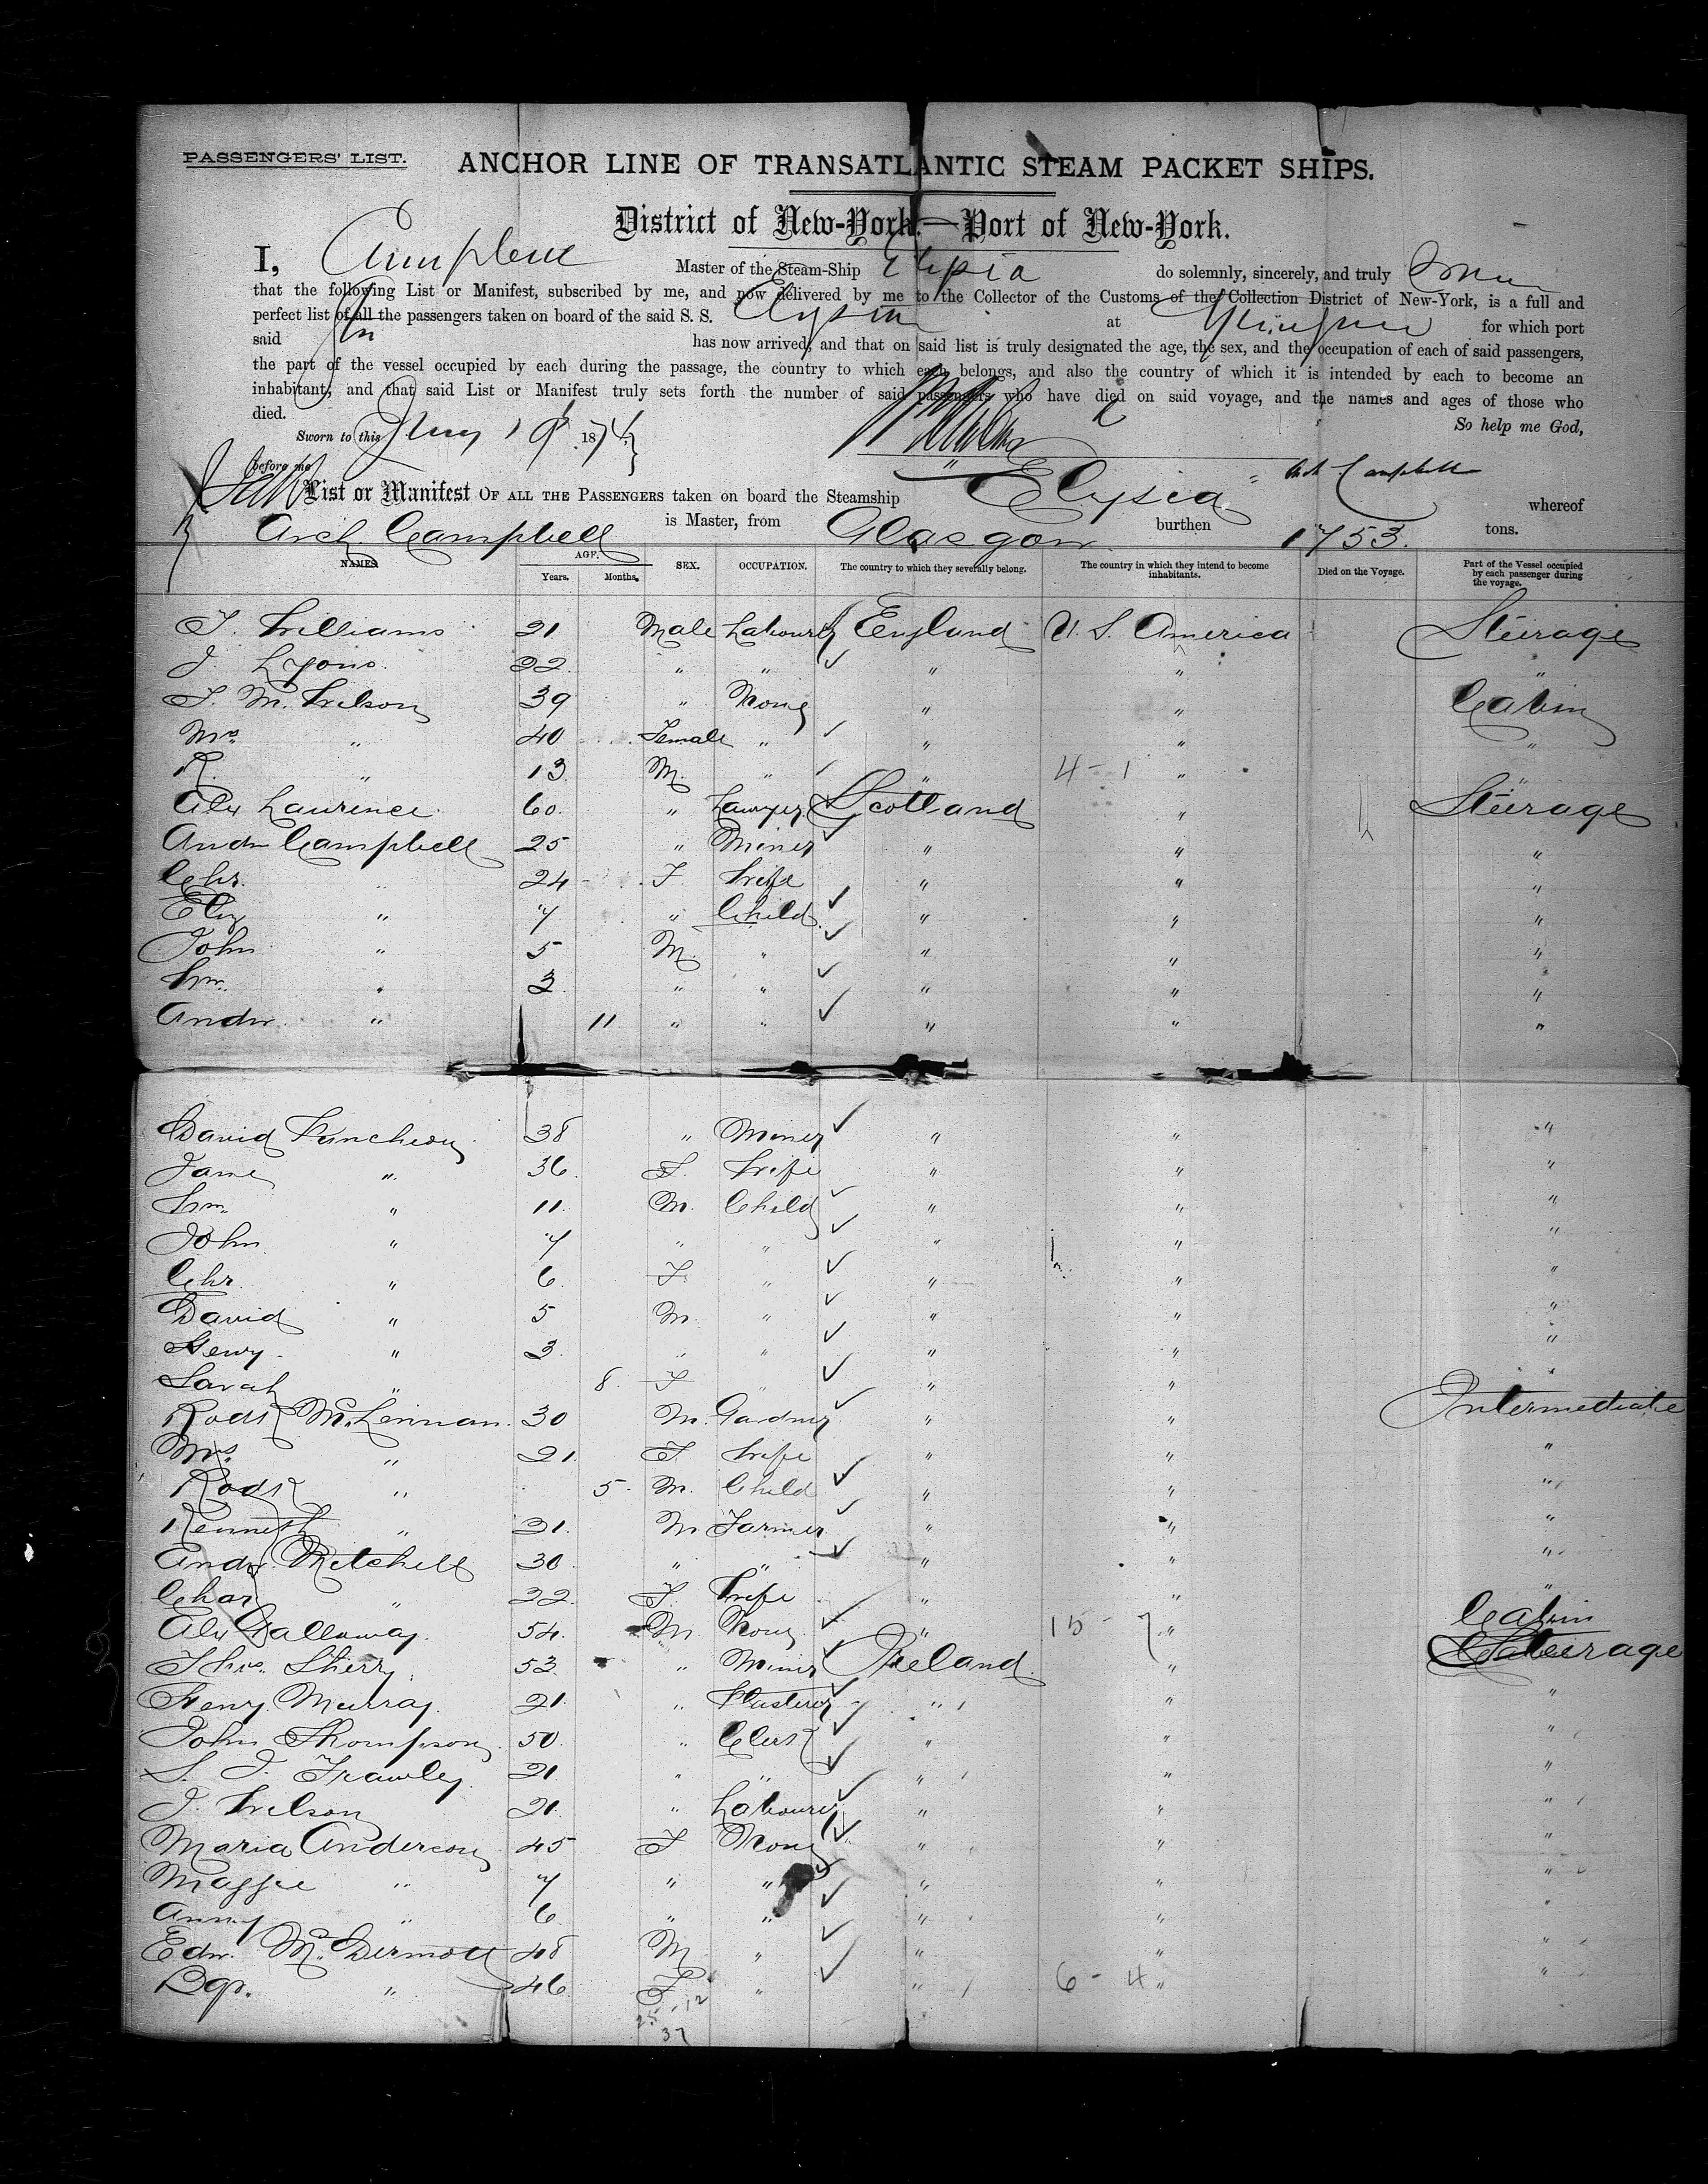 PASSENGERS' LIST.
ANCHOR LINE OF TRANSATLANTIC STEAM PACKET SHIPS.
District of New-York.—Port of New-York.
I, Campbell Master of the Steam-Ship Elysia do solemnly, sincerely, and truly
that the following List or Manifest, subscribed by me, and now delivered by me to the Collector of the Customs of the Collection District of New-York, is a full and
perfect list of all the passengers taken on board of the said S. S. Elysia at Glasgow for which port
said has now arrived; and that on said list is truly designated the age, the sex, and the occupation of each of said passengers,
the part of the vessel occupied by each during the passage, the country to which each belongs, and also the country of which it is intended by each to become an
inhabitant; and that said List or Manifest truly sets forth the number of said passengers who have died on said voyage, and the names and ages of those who
died.
So help me God,
Sworn to this 187
before me
Arch Campbell
List or Manifest OF ALL THE PASSENGERS taken on board the Steamship "Elysia" whereof
Arch Campbell is Master, from Glasgow burthen 1753. tons.
NAMES AGE. Years. Months. SEX. OCCUPATION. The country to which they severally belong. The country in which they intend to become inhabitants. Died on the Voyage. Part of the Vessel occupied by each passenger during the voyage.
T. Williams 21 Male Labourer England U. S. America Steerage
J. Lyons 22 " " " " "
T. M. Wilson 39 " None " " Cabin
Mrs " 40 Female " " " "
R. " 13 M. " " 4-1 " "
Alex Laurence 60. " Lawyer Scotland " Steerage
Andw Campbell 25 " Miner " " "
Chr. " 24 F Wife " " "
Eliz " 7 " Child " " "
John " 5 M. " " " "
Wm. " 3 " " " " "
Andw " 11 " " " " "
David 38 " Miner " " "
Jane " 36 F. Wife " " "
Wm. " 11. M. Child " " "
John " 7 " " " " "
Chr. " 6. F " " " "
David " 5 M " " " "
Henry " 3. " " " " "
Sarah " 8. F " " " "
Rodk McLennan 30 M. Gardner " " Intermediate
Mrs " 21. F Wife " " "
Rodk " 5. M. Child " " "
Kenneth " 31. M Farmer " " "
Andw. Mitchell 30 " " " " "
Char " 22. F. Wife " " "
Alex Galloway 54. M None " 15-7 " Cabin
Thos. Sherry 53 " Miner Ireland " Steerage
Henry Murray 21. " Plasterer " " "
John Thompson 50 " Clerk " " "
S. J. Frawley 21 " " " " "
J. Wilson 21. " Labourer " " "
Maria Anderson 45 F None " " "
Maggie " 7 " " " " "
Anny " 6 " " " " "
Edw. McDermott 48 M " " " "
" 46 F " " 6-4 " "
25-12
37